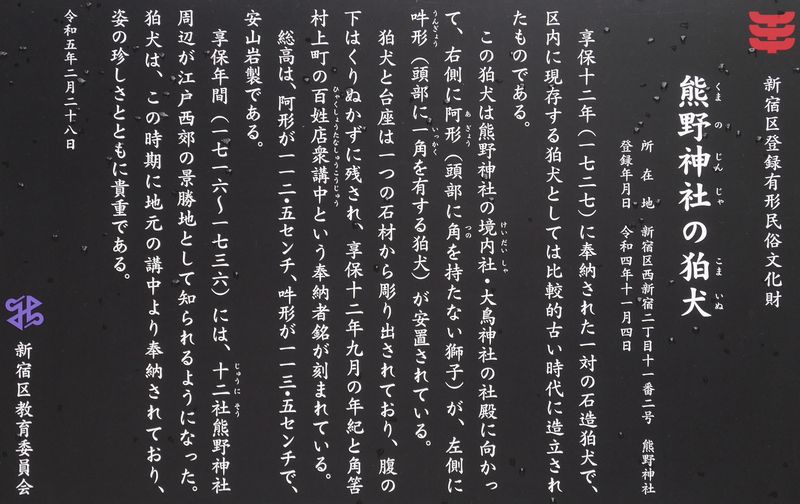 新宿区登録有形民俗文化財
熊野神社の狛犬
くまのじんじゃ こまいぬ
所在地 新宿区西新宿二丁目十一番二号 熊野神社
登録年月日 令和四年十一月四日
享保十二年（一七二七）に奉納された一対の石造狛犬で、
区内に現存する狛犬としては比較的古い時代に造立され
たものである。
この狛犬は熊野神社の境内社・大鳥神社の社殿に向かっ
けいだいしゃ
て、右側に阿形（頭部に角を持たない獅子）が、左側に
あぎょう つの
吽形（頭部に一角を有する狛犬）が安置されている。
うんぎょう いっかく
狛犬と台座は一つの石材から彫り出されており、腹の
下はくりぬかずに残され、享保十二年九月の年紀と角筈
村上町の百姓店衆講中という奉納者銘が刻まれている。
ひゃくしょうたなしゅうこうじゅう
総高は、阿形が一一二・五センチ、吽形が一一三・五センチで、
安山岩製である。
享保年間（一七一六〜一七三六）には、十二社熊野神社
じゅうにそう
周辺が江戸西郊の景勝地として知られるようになった。
狛犬は、この時期に地元の講中より奉納されており、
姿の珍しさとともに貴重である。
令和五年二月二十八日
新宿区教育委員会